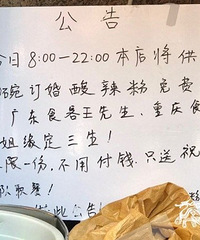 公告
今日8:00—22:00本店将供
百碗订婚酸辣粉免费
广东食客王先生、重庆食
姐缘定三生!
限一份,不用付钱.只送祝
队取餐!
此公告!